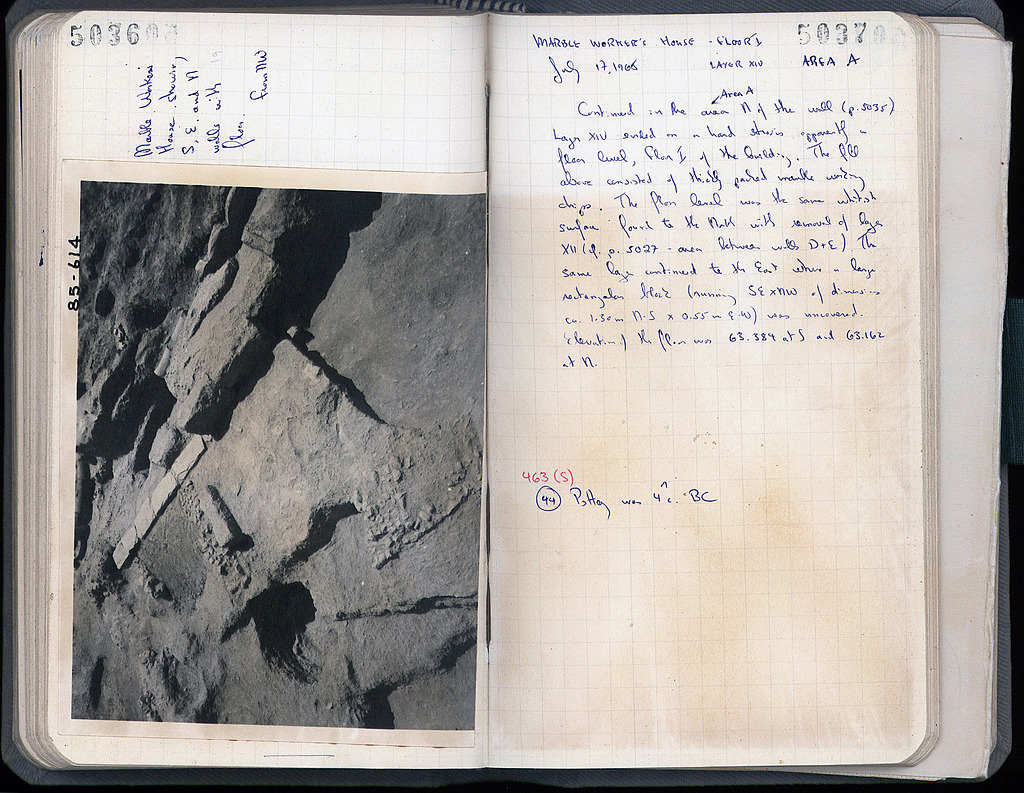 503603
Marble Workers
House showing
S, E. and N
walls with
floor.
from NW
85-614
503703
MARBLE WORKER'S HOUSE - FLOOR I
July 17, 1966 LAYER XIV AREA A
Area A
Continued in the area N of the wall (p. 5035)
Layer XIV ended on a hard stratum apparently a
floor level, Floor I of the building. The fill
above consisted of thickly packed marble working
chips. The floor level was the same whitish
surface found to the North with removal of layer
XII (cf. p. 5027 - area between walls D+E) The
same layer continued to the East where a large
rectangular block (running SE x NW of dimensions
ca. 1.30m N-S x 0.55m E-W) was uncovered.
Elevation of the floor was 63.384 at S and 63.162
at N.
463 (S)
44 Pottery was 4 c. BC